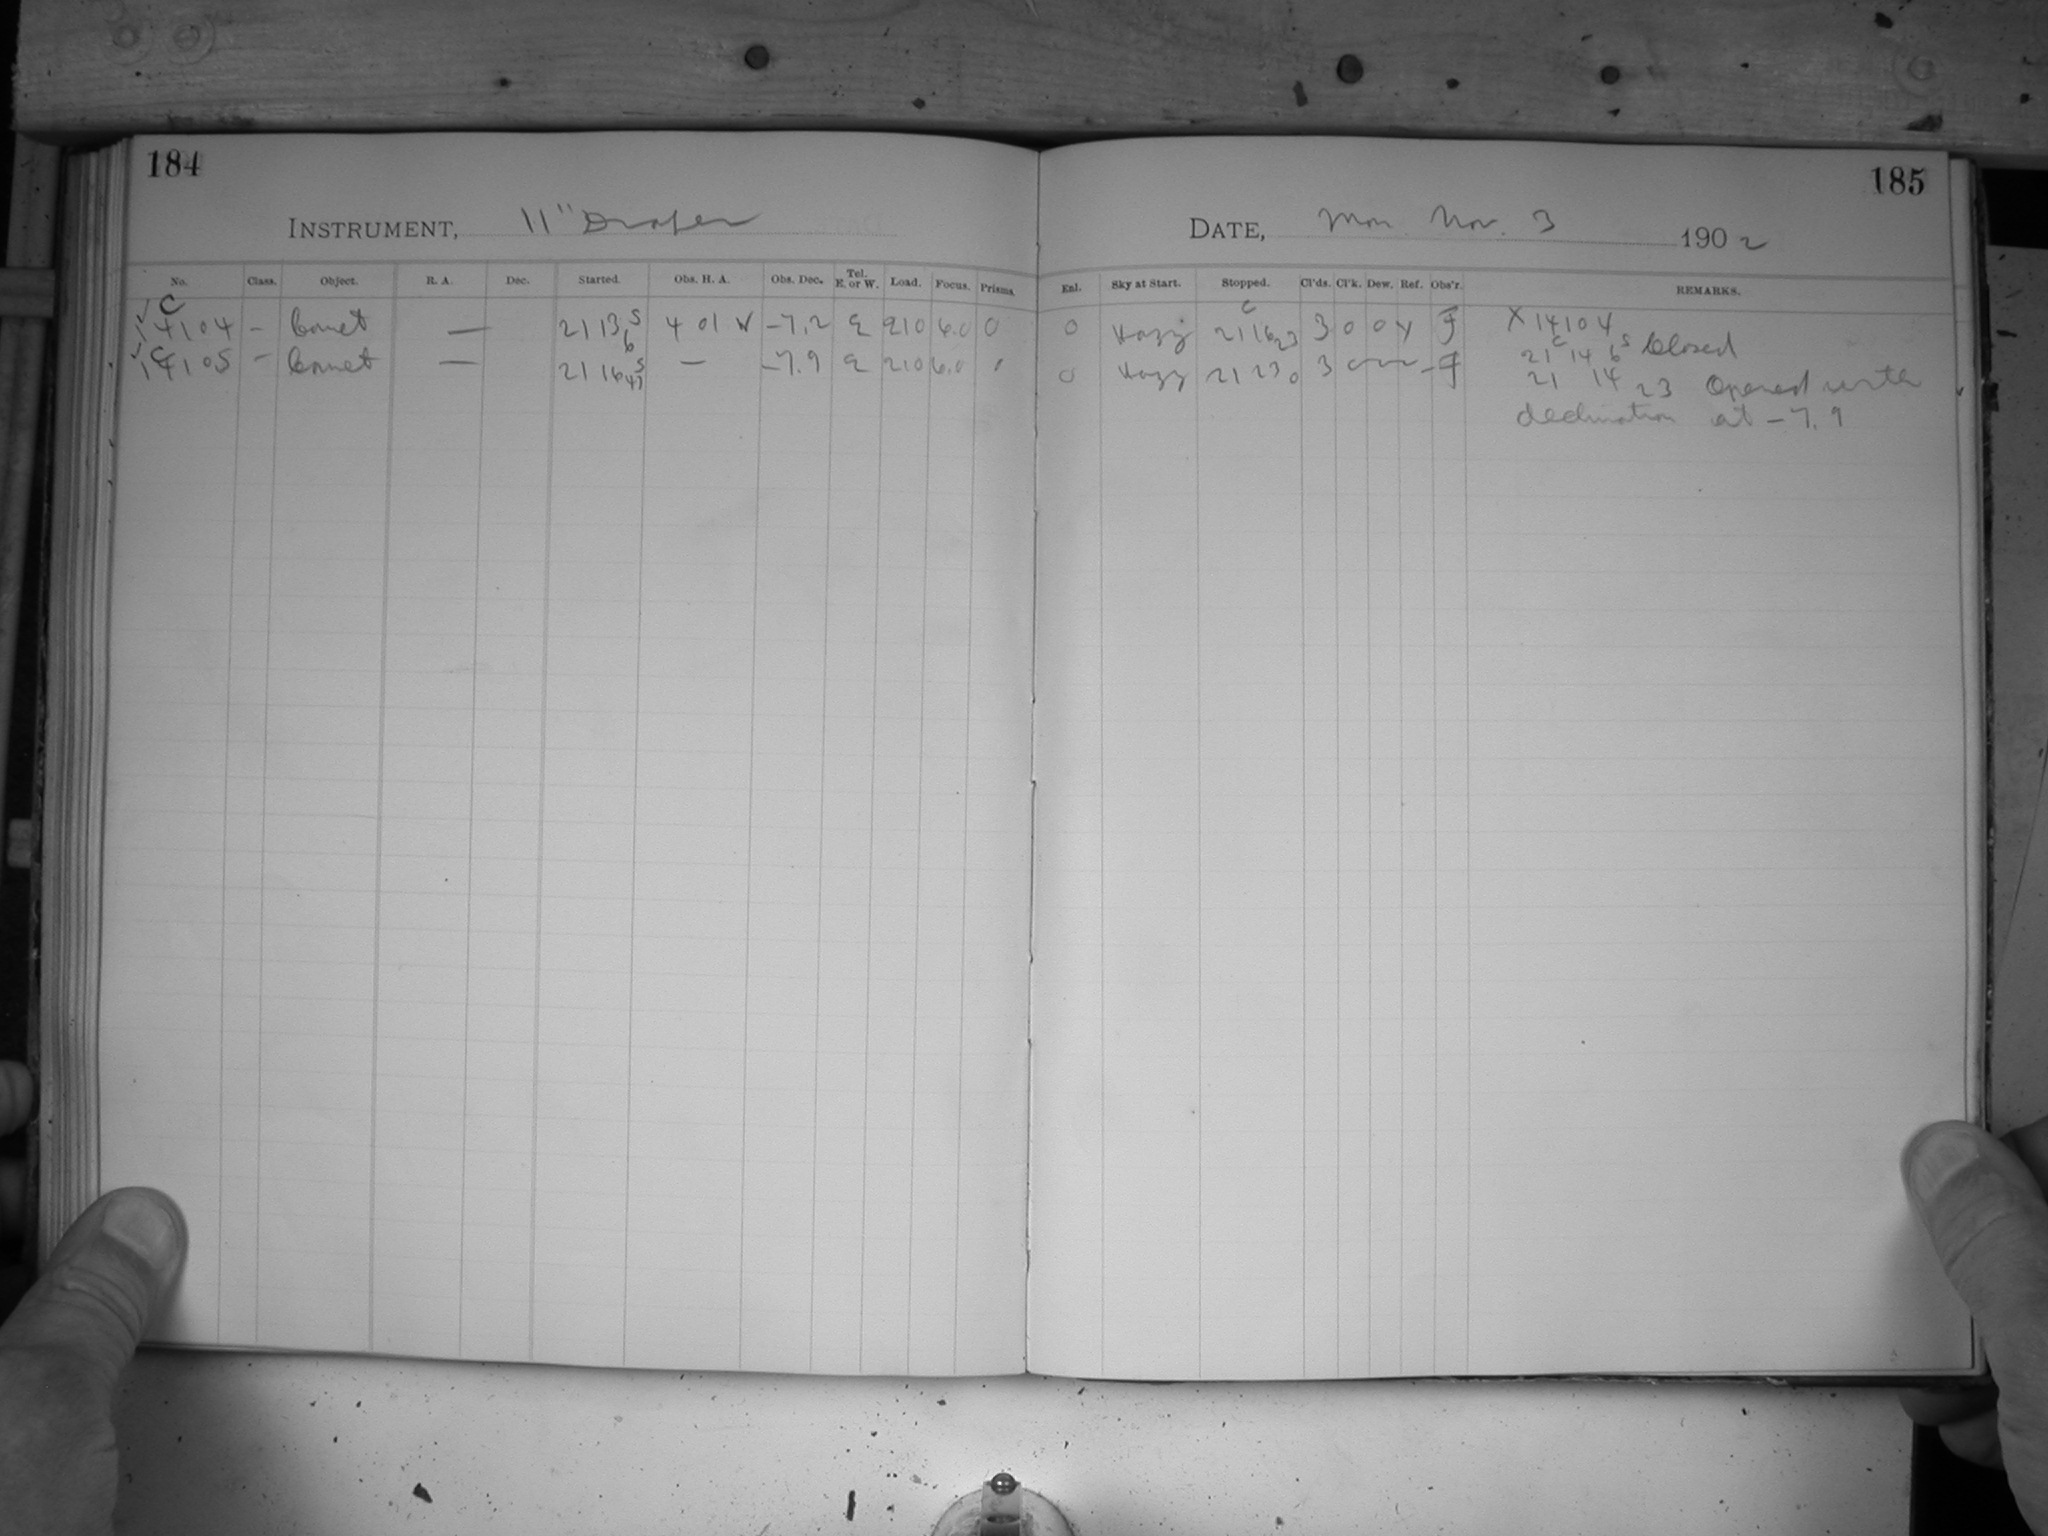 184
INSTRUMENT, 11" Draper
No. Class. Object. R. A. Dec. Started. Obs. H. A. Obs. Dec. Tel. E. or W. Load. Focus. Prisms.
C
14104 – Comet — 21 13 6 S 4 01 W –7.2 E 210 6.0 0
C
14105 – Comet — 21 16 47 S — –7.9 E 210 6.0
185
DATE, Mon. Nov. 3 1902
Enl. Sky at Start. Stopped. Cl'ds. Cl'k. Dew. Ref. Obs'r. REMARKS.
0 Hazy 21 16 23 3 0 0 y F X 14104
0 Hazy 21 23 0 3 — F
21 14 6 S Closed
21 14 23 Opened with
declination at –7.9